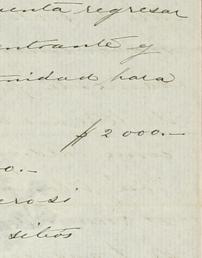 uenta regresar
entrante y
nidad para
$ 2 000.—
o.—
ero si
sitios